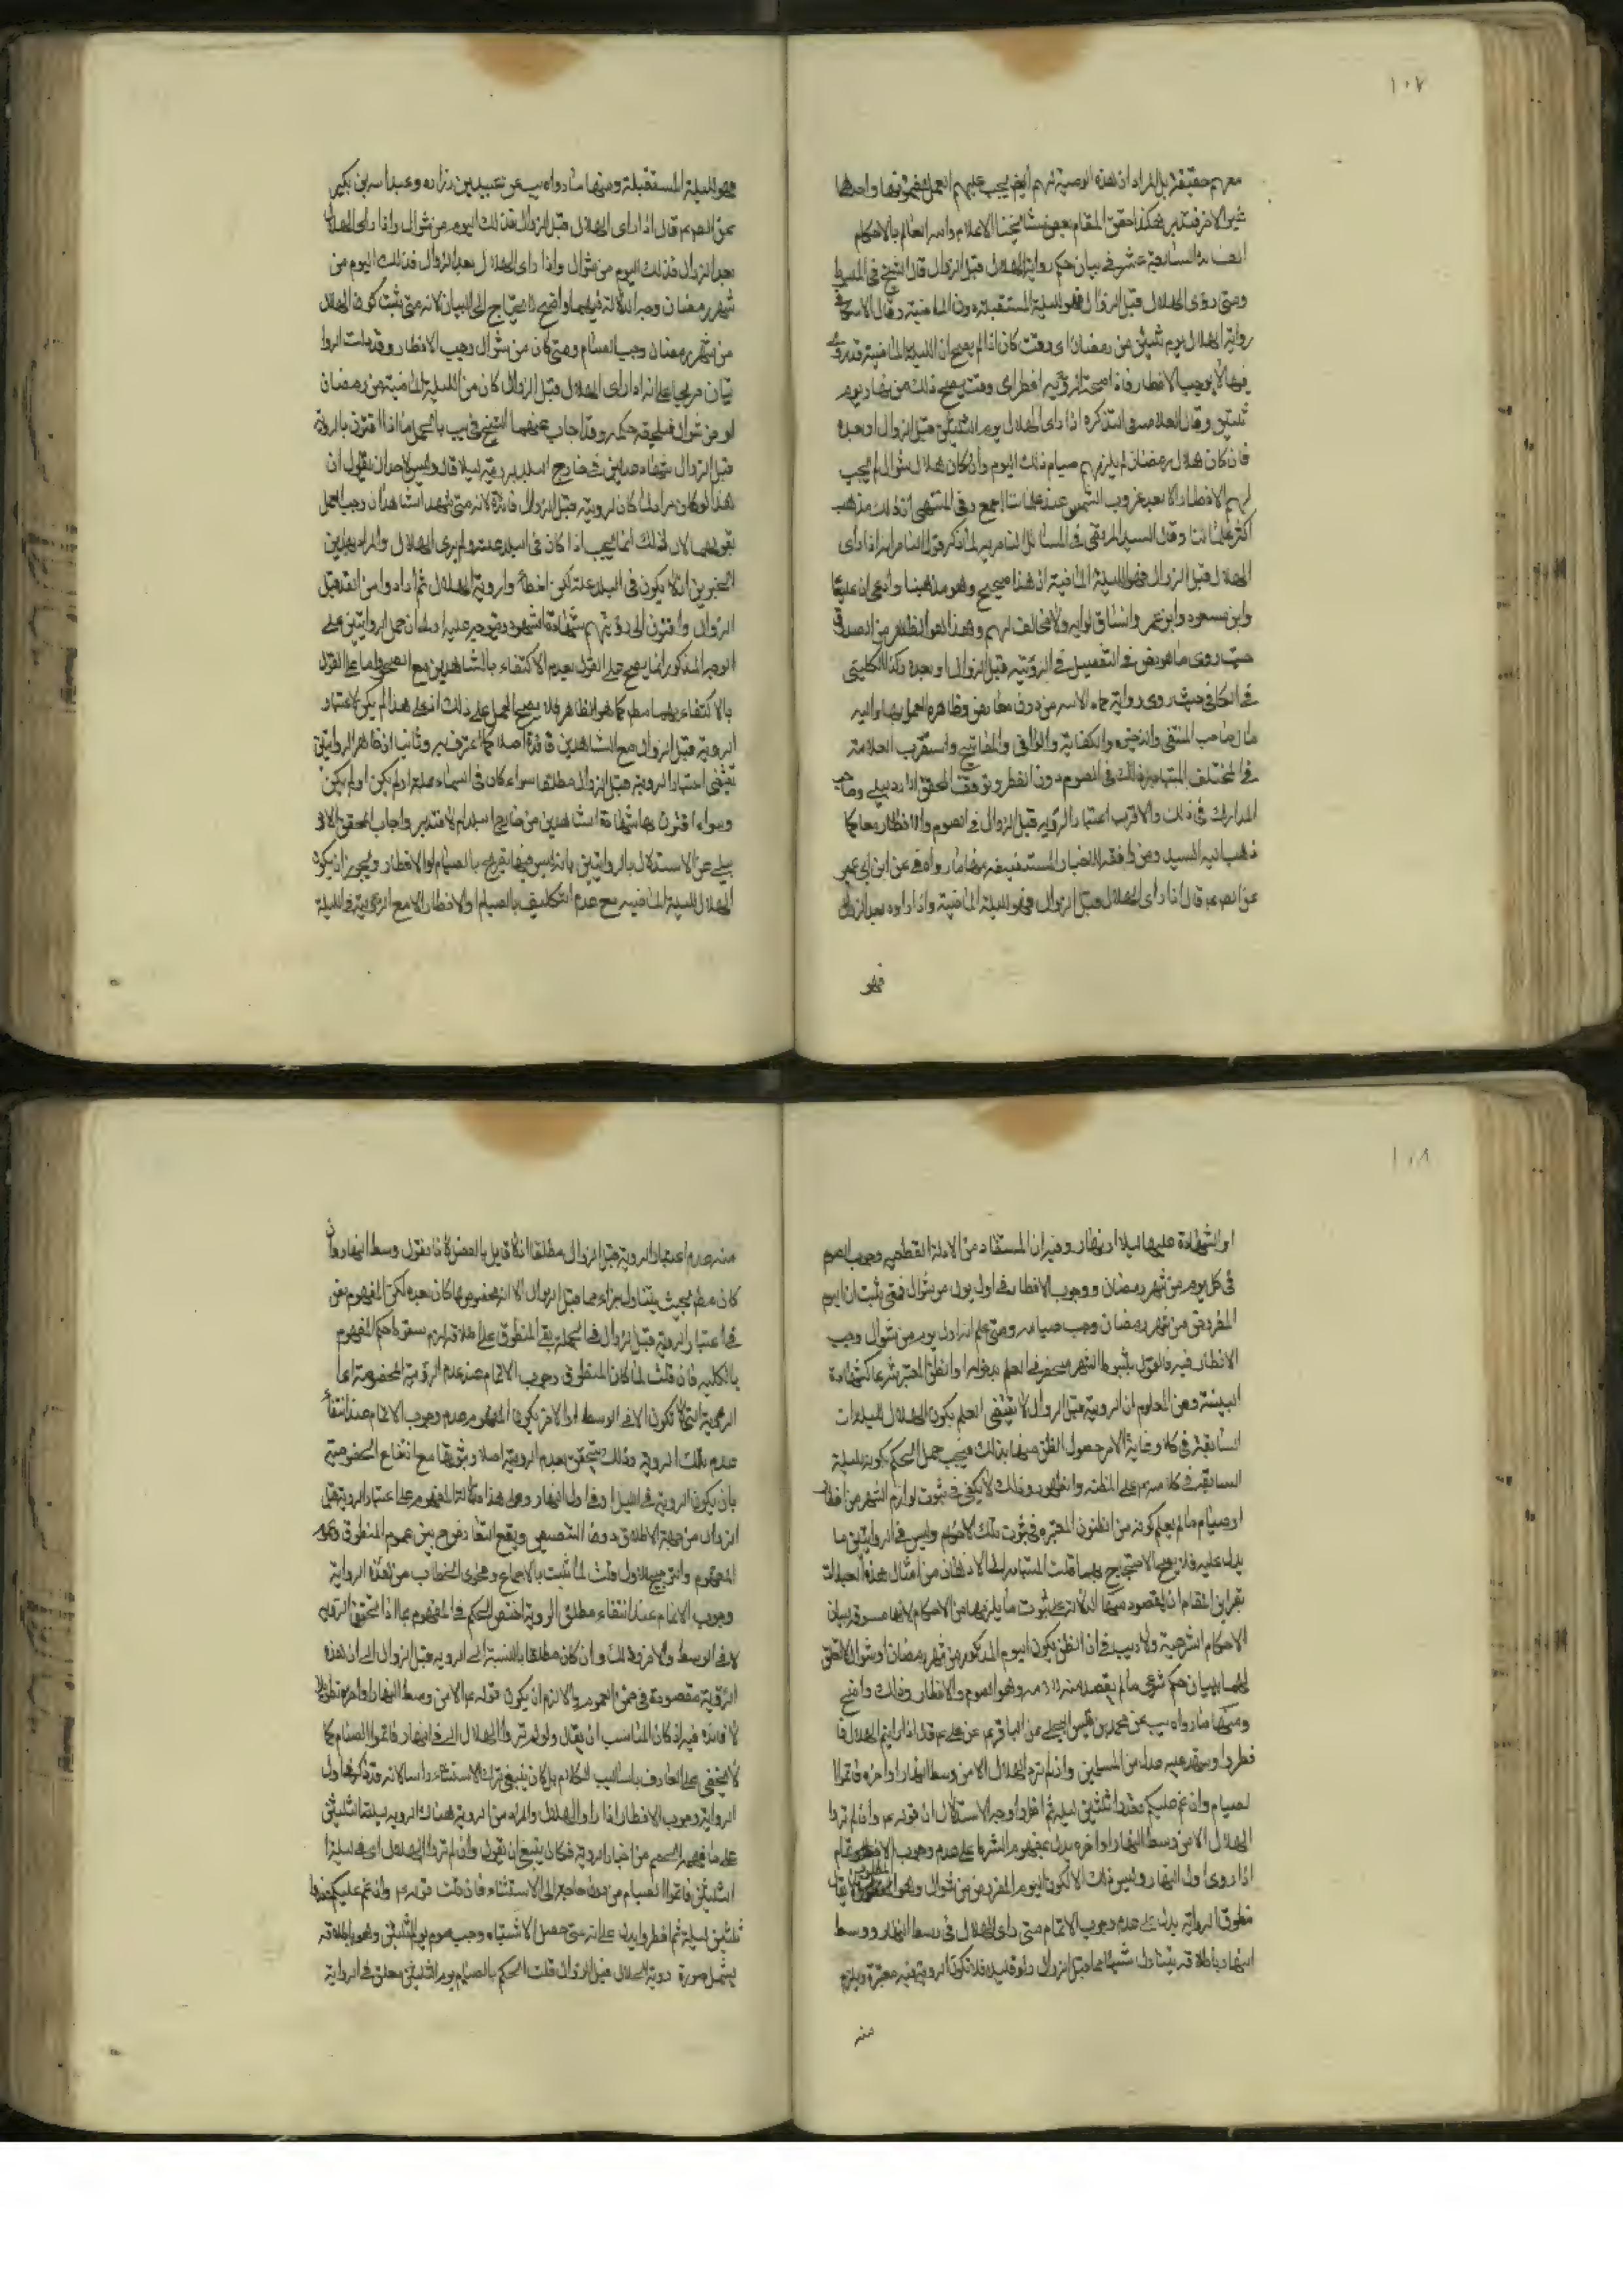 ١٠٧
معهم حقيقة بل المراد ان هذه الوصية لهم ايضا يجب عليهم العمل بمضمونها واحدها
غير الاخر فتدبر هكذا حقق المقام بعض مشايخنا الاعلام والله العالم بالاحكام
السابعة عشر في بيان حكم رواية الهلال قبل الزوال قال الشيخ في المبسوط
ومتى رؤى الهلال قبل الزوال فهو لليلة المستقبلة دون الماضية وقال
رواية الهلال يوم ثلثين من رمضان اى وقت كان اذا لم يصح ان الليلة الماضية قد رؤى
فيها لا يوجب الافطار فاذا صحت الرؤية افطر اى وقت يصح ذلك من نهار يوم
ثلثين وقال العلامة في التذكرة اذا راى الهلال يوم الثلثين قبل الزوال او بعده
فان كان هلال رمضان لم يلزمهم صيام ذلك اليوم وان كان هلال شوال لم يجب
لهم الافطار الا بعد غروب الشمس عند علمائنا اجمع وفي المنتهى ان ذلك مذهب
اكثر علمائنا وقال السيد المرتضى في المسائل الناصرية لما ذكر قول الناصر اذا راى
الهلال قبل الزوال فهو لليلة الماضية ان هذا صحيح وهو مذهبنا وادعى ان عليا
وابن مسعود وابن عمر وانسا قالوا به ولا مخالف لهم وهذا هو الظاهر من الصدوق
حيث روى ما هو نص في التفصيل في الرؤية قبل الزوال او بعده وكذا الكليني
في الكافي حيث روى رواية حماد من دون معارض وظاهره العمل بها واليه
مال صاحب المنتقى والذخيرة والكفاية والوافى والمفاتيح واستقرب العلامة
في المختلف اعتبار ذلك في الصوم دون الفطر وتوقف المحقق الاردبيلي وصاحب
المدارك في ذلك والاقرب اعتبار الرؤية قبل الزوال في الصوم والافطار معا كما
ذهب اليه السيد ومن وافقه للاخبار المستفيضة منها ما رواه عن ابن ابي عمير
عن قال اذا راى الهلال قبل الزوال فهو لليلة الماضية واذا راوه بعد الزوال
فهو
فهو لليلة المستقبلة ومنها ما رواه يب عن عبيد بن زراره وعبد الله بن بكير
عن قال اذا راى الهلال قبل الزوال فذلك اليوم من شوال واذا راى الهلال
بعد الزوال فذلك اليوم من شوال واذا راى الهلال بعد الزوال فذلك اليوم من
شهر رمضان وجه الدلالة فيهما واضح لا يحتاج الى البيان لانه متى ثبت كون الهلال
من شهر رمضان وجب الصيام ومتى كان من شوال وجب الافطار وقد دلت الروا
يتان صريحا على انه اذا راى الهلال قبل الزوال كان من الليلة الماضية من رمضان
او من شوال فيلحقه حكمه وقد اجاب عنهما الشيخ في يب بالحمل على ما اذا اقترن بالرؤية
قبل الزوال شهادة عدلين في خارج البلد برؤيته ليلا قال وليس لاحد ان يقول ان
هذا لو كان مرادا لما كان لرؤيته قبل الزوال فائدة لانه متى شهد الشاهدان وجب العمل
بقولهما لان ذلك انما يجب اذا كان في البلد علة ولم يرى الهلال والمراد بهذين
الخبرين ان لا يكون في البلد علة لكن اخطأوا رؤية الهلال ثم راوا من الغد قبل
الزوال واقترن الى رؤيتهم شهادة الشهود ويتوجه عليه اولا ان حمل الروايتين على
الوجه المذكور انما يصح على القول بعدم الاكتفاء بالشاهدين مع الصحو واما على القول
بالاكتفاء بهما مطلقا كما هو الظاهر فلا يصح الحمل على ذلك اذ على هذا لم يكن لاعتبار
الرؤية قبل الزوال مع الشاهدين فائدة اصلا كما اعترف به وثانيا ان ظاهر الروايتين
يقتضى اعتبار الرؤية قبل الزوال مطلقا سواء كان في السماء علة او لم يكن
وسواء اقترن بها شهادة الشاهدين من خارج البلد ام لا فتدبر واجاب المحقق الارد
بيلى عن الاستدلال بالروايتين بانه ليس فيهما تصريح بالصيام او الافطار ويجوز ان يكون
الهلال لليلة الماضية مع عدم التكليف بالصيام والافطار الا مع الرؤية في الليلة
١٠٨
او الشهادة عليها ليلا او نهارا وفيه ان المستفاد من الادلة القطعية وجوب الصوم
في كل يوم من شهر رمضان ووجوب الافطار في اول يوم من شوال فمتى ثبت ان اليوم
المفروض من شهر رمضان وجب صيامه ومتى علم انه اول يوم من شوال وجب
الافطار فيه فالقول بثبوت الشهر منحصر في العلم بدخوله او الظن المعتبر شرعا كشهادة
البينة ومن المعلوم ان الرؤية قبل الزوال لا تقتضى العلم بكون الهلال لليلة
السابقة في كلا وغاية الامر حصول الظن منها بذلك فيجب حمل الحكم بكونه لليلة
السابقة في كلامهم على المظنة والظهور وذلك لا يكفى في ثبوت لوازم الشهر من افطار
او صيام ما لم يعلم كونه من الظنون المعتبرة في ثبوت تلك الاحكام وليس في الروايتين ما
يدل عليه فلا يصح الاحتجاج بهما قلت المتبادر الى الاذهان من امثال هذه العبارات
بقراين المقام ان المقصود منها الدلالة على ثبوت ما يلزمها من الاحكام لانها مسوقة لبيان
الاحكام الشرعية ولا ريب في ان الظن بكون اليوم المذكور من شهر رمضان او شوال لا تعلق
لهما ببيان حكم شرعى ما لم يقصد منه وهو الصوم والافطار وذلك واضح
ومنها ما رواه يب عن محمد بن قيس البجلي عن الباقر عن علي قال اذا رايتم الهلال فا
فطروا وشهد عليه عدل من المسلمين وان لم تروا الهلال الا من وسط النهار او اخره فاتموا
الصيام وان غم عليكم فعدوا ثلثين ليلة ثم افطروا وجه الاستدلال ان قوله وان لم تروا
الهلال الا من وسط النهار او اخره يدل بمفهوم الشرط على عدم وجوب الاتمام
اذا روى اول النهار وليس ذلك الا لكون اليوم المفروض من شوال وهو المطلوب
منطوق الرواية يدل على عدم وجوب الاتمام متى راى الهلال في وسط النهار ووسط
النهار باطلاقه يتناول شيئا مما قبل الزوال ولو قليلا فلا تكون الرؤية فيه معتبرة ويلزم
منه
منه عدم اعتبار الرؤية قبل الزوال مطلقا اذ لا قايل بالفصل لانا نقول وسط النهار وان
كان مطلقا بحيث يتناول جزاء مما قبل الزوال الا انه مخصوص بما كان بعده لكن المفهوم نص
في اعتبار الرؤية قبل الزوال في الجملة بقى المنطوق على اطلاقه لزم سقوط حكم المفهوم
بالكلية فان قلت لما كان المنطوق وجوب الاتمام عند عدم الرؤية المخصوصة اعنى
الرؤية التى لا تكون الا في الوسط او الاخر يكون المفهوم عدم وجوب الاتمام عند انتفاء
عدم تلك الرؤية وذلك يتحقق بعدم الرؤية اصلا وثبوتها مع انتفاء الخصوصية
بان يكون الرؤية في الليل او في اول النهار وعلى هذا دلالة المفهوم على اعتبار الرؤية قبل
الزوال من جهة الاطلاق دون التنصيص ويقع التعارض ح بين عموم المنطوق وعموم
المفهوم والترجيح للاول قلت لما ثبت بالاجماع وفحوى الخطاب من هذه الرواية
وجوب الاتمام عند انتفاء مطلق الرؤية اختص الحكم في المفهوم بما اذا تحقق الرؤية
لا في الوسط والاخر وذلك وان كان مطلقا بالنسبة الى الرؤية قبل الزوال الا ان هذه
الرؤية مقصودة في ضمن العموم والا لزم ان يكون قوله الا من وسط النهار او اخره
لا فائدة فيه اذ كان المناسب ان يقال ولو لم تروا الهلال الى النهار فاتموا الصيام كما
لا يخفى على العارف باساليب الكلام بل كان ينبغى ترك الاستثناء راسا لانه قد ذكر في اول
الرواية وجوب الافطار اذا راوا الهلال والمراد من الرؤية هناك الرؤية ليلة الثلثين
على ما فهمه من اخبار الرؤية فكان ينبغي ان يقول وان لم تروا الهلال اى في ليلة
الثلثين فاتموا الصيام من دون حاجة الى الاستثناء فان قلت قوله وان غم عليكم فعدوا
ثلثين ليلة ثم افطروا يدل على انه متى حصل الاشتباه وجب صوم يوم الثلثين وهو باطلاقه
يشمل صورة رؤية الهلال قبل الزوال قلت الحكم بالصيام يوم الثلثين معلق في الرواية